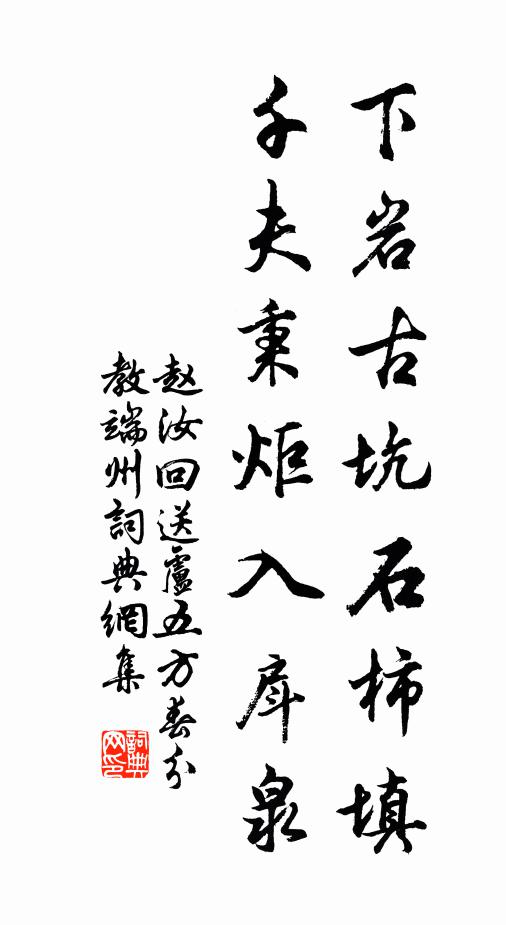 下岩古坑石柿填
千夫秉炬入戽泉
赵汝回送盧五方春分
教端州詞典網集
詞典网印